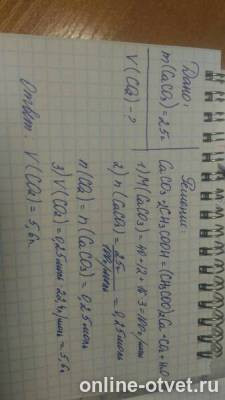 Дано:
m(CaCO₃) = 25г
V(CO₂) - ?
Решение:
CaCO₃ + 2CH₃COOH = (CH₃COO)₂Ca +
1) M(CaCO₃) = 40 + 12 + 16·3 = 100г/моль
2) n(CaCO₃) = 25г / 100г/моль = 0,25моль
n(CO₂) = n(CaCO₃) = 0,25моль
3) V(CO₂) = 0,25моль · 22,4л/моль = 5,6л
Ответ: V(CO₂) = 5,6л
online-otvet.ru